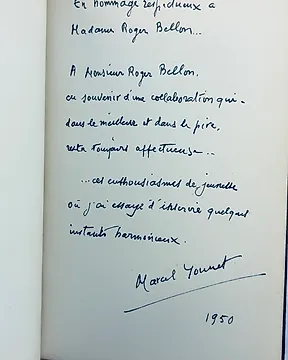 En hommage respectueux à
Madame Roger Bellon...
A Monsieur Roger Bellon,
en souvenir d'une collaboration qui -
dans le meilleur et dans le pire,
resta toujours affectueuse...
...ces enthousiasmes de jeunesse
où j'ai essayé d'inscrire quelques
instants harmonieux.
Marcel
1950